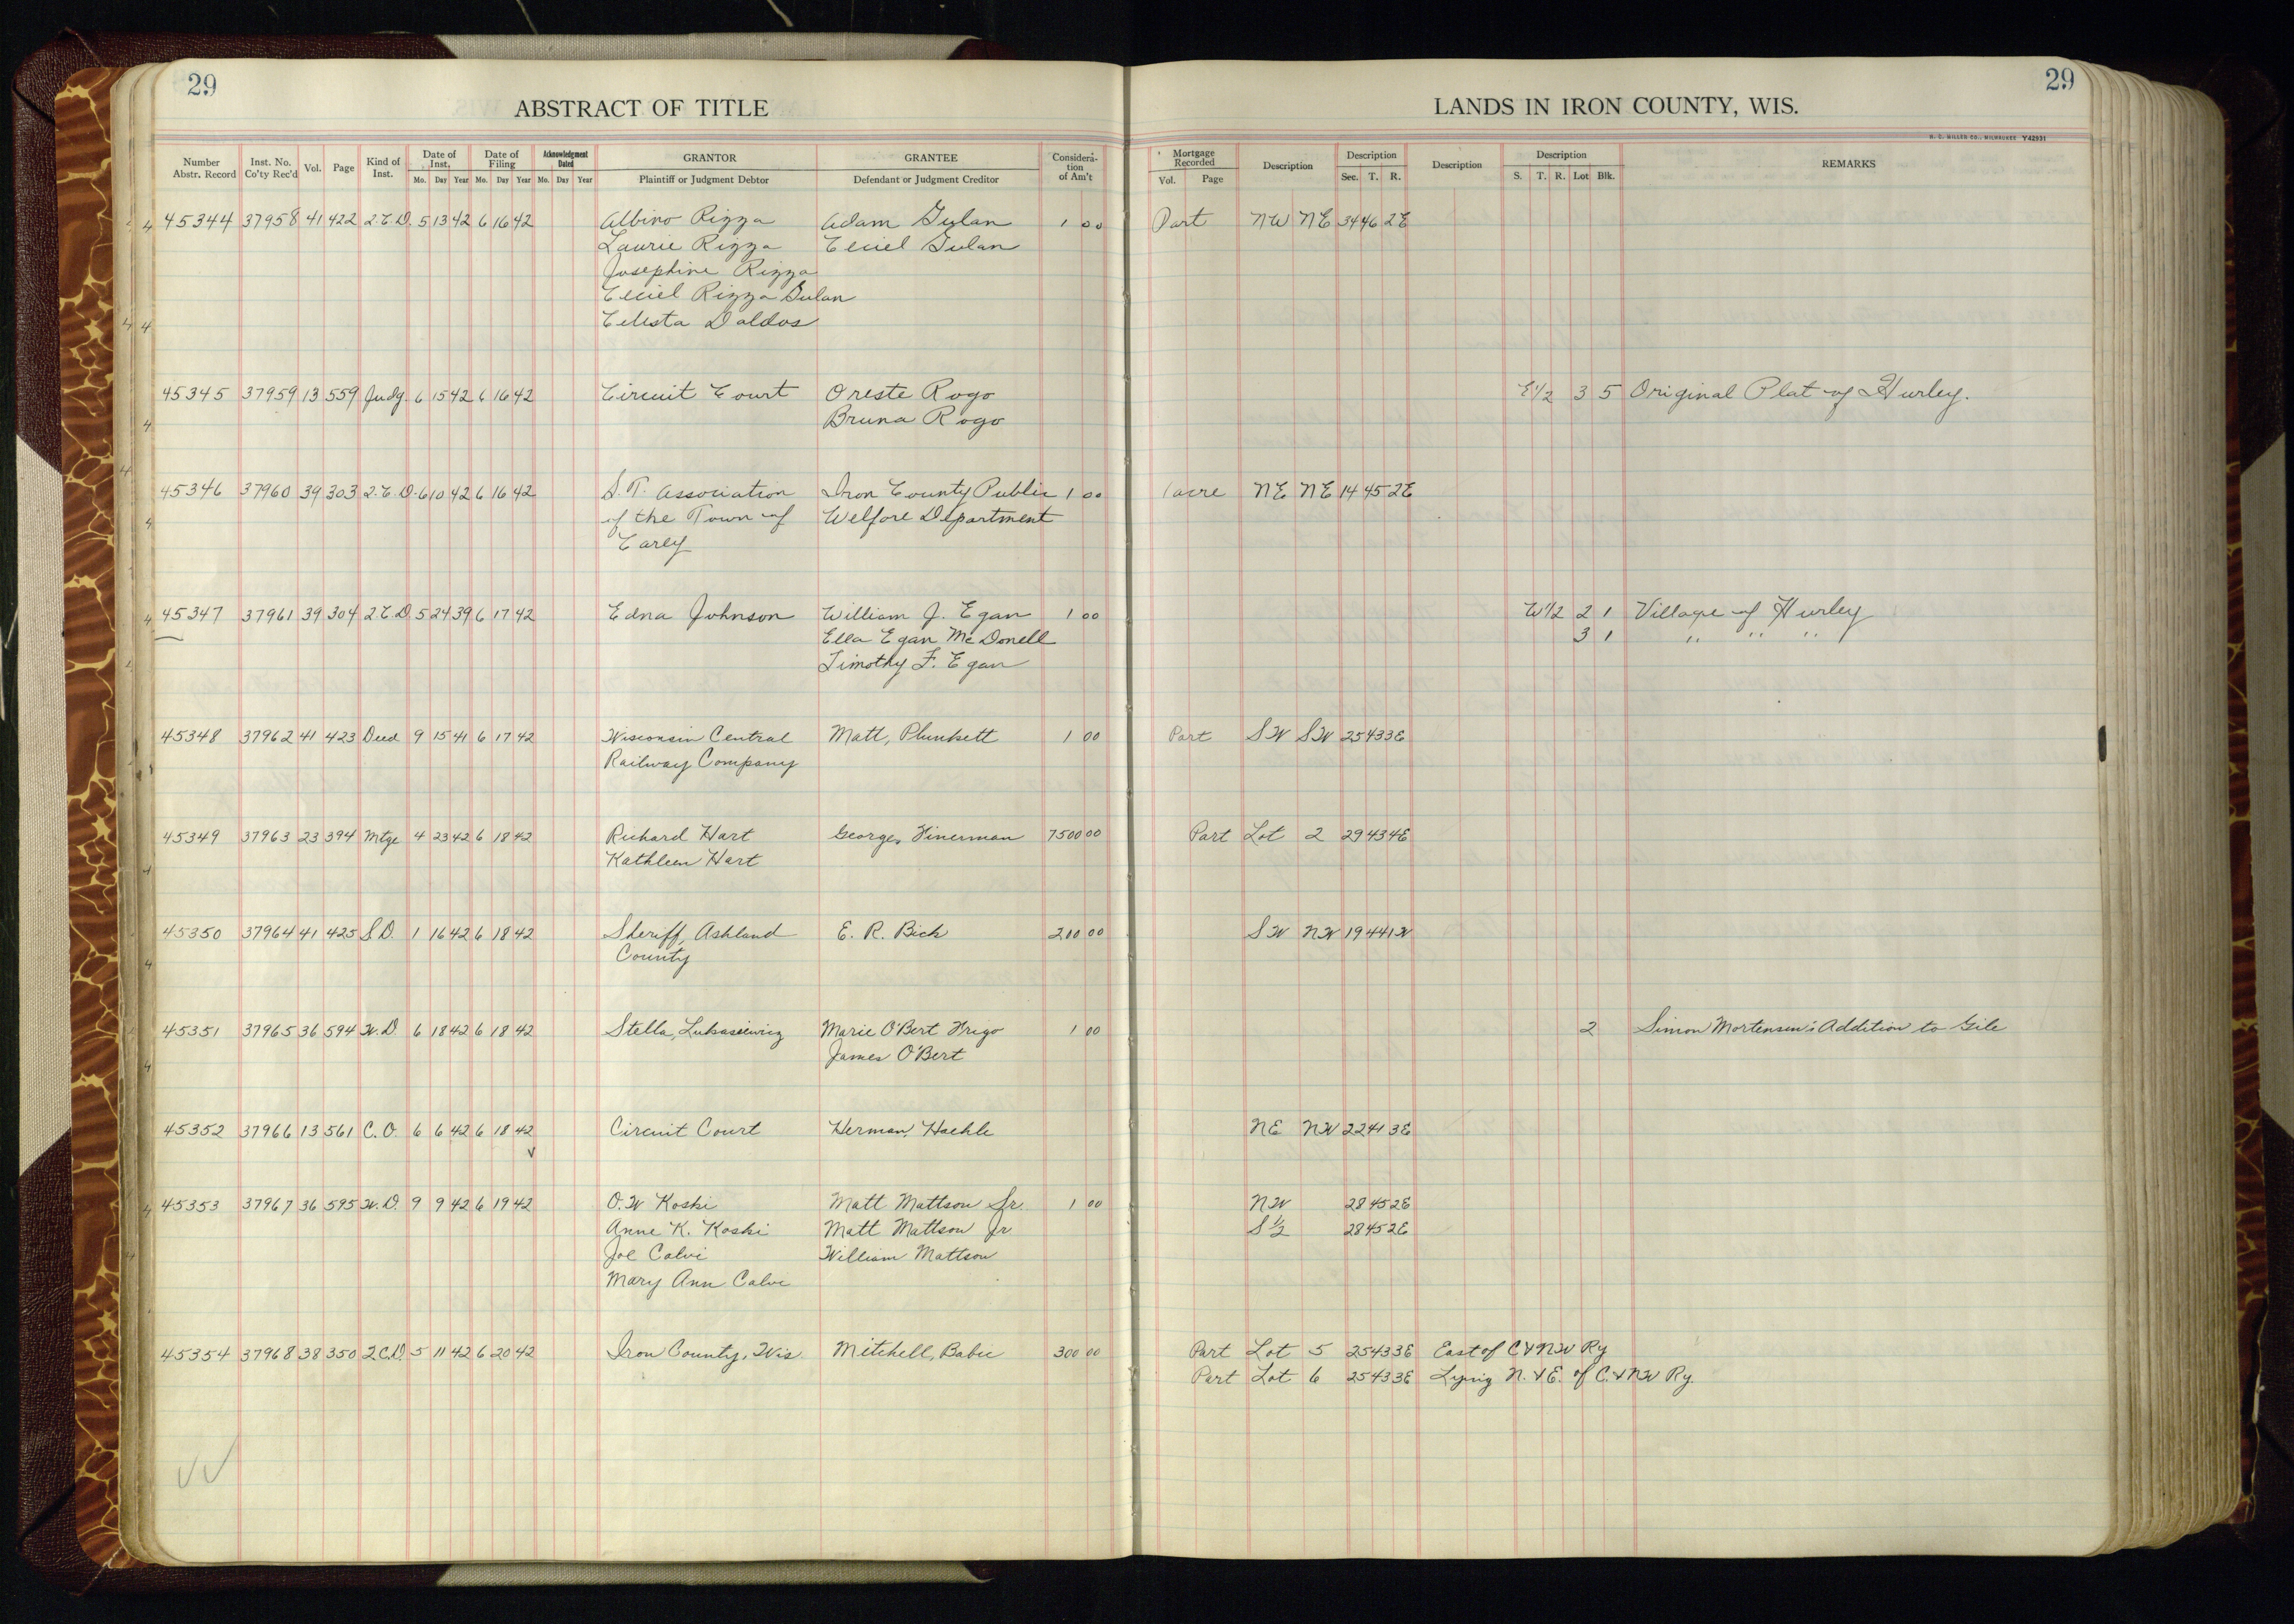 29
29
ABSTRACT OF TITLE
LANDS IN IRON COUNTY, WIS.
H. C. MILLER CO., MILWAUKEE Y42931
Number Abstr. Record Inst. No. Co'ty Rec'd Vol. Page Kind of Inst. Date of Inst. Mo. Day Year Date of Filing Mo. Day Year Acknowledgment Dated Mo. Day Year GRANTOR Plaintiff or Judgment Debtor GRANTEE Defendant or Judgment Creditor Considera-tion of Am't Mortgage Recorded Vol. Page Description Description Sec. T. R. Description Description S. T. R. Lot Blk. REMARKS
45344 37958 41 422 2.C.D. 5 13 42 6 16 42 Albino Rizza Adam Gulan 1 00 Part NW NE 34 46 2E
Laurie Rizza Ceciel Gulan
Josephine Rizza
Ceciel Rizza Gulan
Celesta Daldos
45345 37959 13 559 Judg 6 15 42 6 16 42 Circuit Court Oreste Rogo E1/2 3 5 Original Plat of Hurley.
Bruna Rogo
45346 37960 39 303 2.C.D. 6 10 42 6 16 42 S.T. Association Iron County Public 1 00 1 acre NE NE 14 45 2E
of the Town of Welfare Department
Carey
45347 37961 39 304 2.C.D. 5 24 39 6 17 42 Edna Johnson William J. Egan 1 00 W1/2 2 1 Village of Hurley
Ella Egan McDonell 3 1 " " "
Timothy F. Egan
45348 37962 41 423 Deed 9 15 41 6 17 42 Wisconsin Central Matt, Plunkett 1 00 Part SW SW 25 43 3E
Railway Company
45349 37963 23 394 Mtge 4 23 42 6 18 42 Richard Hart George, Finerman 7500 00 Part Lot 2 29 43 4E
Kathleen Hart
45350 37964 41 425 S.D. 1 16 42 6 18 42 Sheriff, Ashland E. R. Bick 200 00 SW NW 19 44 1W
County
45351 37965 36 594 W.D. 6 18 42 6 18 42 Stella, Lukasiewicz Marie O'Bert Frigo 1 00 2 Simon Mortensen's Addition to Gile
James O'Bert
45352 37966 13 561 C.O. 6 6 42 6 18 42 Circuit Court Herman, Haehle NE NW 22 41 3E
45353 37967 36 595 W.D. 9 9 42 6 19 42 O.W Koski Matt Mattson Sr. 1 00 NW 28 45 2E
Anne K. Koski Matt Mattson Jr S 1/2 28 45 2E
Joe Calvi William Mattson
Mary Ann Calvi
45354 37968 38 350 2.C.D. 5 11 42 6 20 42 Iron County, Wis Mitchell, Babic 300 00 Part Lot 5 25 43 3E East of C&NW Ry
Part Lot 6 25 43 3E Lying N. & E. of C.&NW Ry.